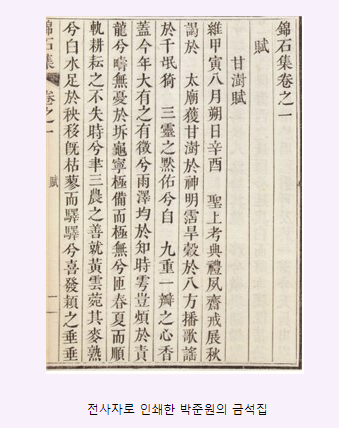 錦石集卷之一
賦
甘澍賦
維甲寅八月朔日辛酉 聖上考典禮夙齋戒展秋
謁於 太廟獲甘澍於神明霑旱穀於八方播歌謠
於千氓猗 三靈之黙佑兮自 九重一瓣之心香
蓋今年大有之有徵兮雨澤均於知時雩豈煩於責
龍兮疇無憂於坼龜寧極備而極無兮匪春夏而順
軌耕耘之不失時兮聿三農之善就黃雲菀其麥熟
兮白水足於秧移旣枯蓼而驛驛兮喜發穎之垂垂
錦石集 卷之一 賦 一
전사자로 인쇄한 박준원의 금석집